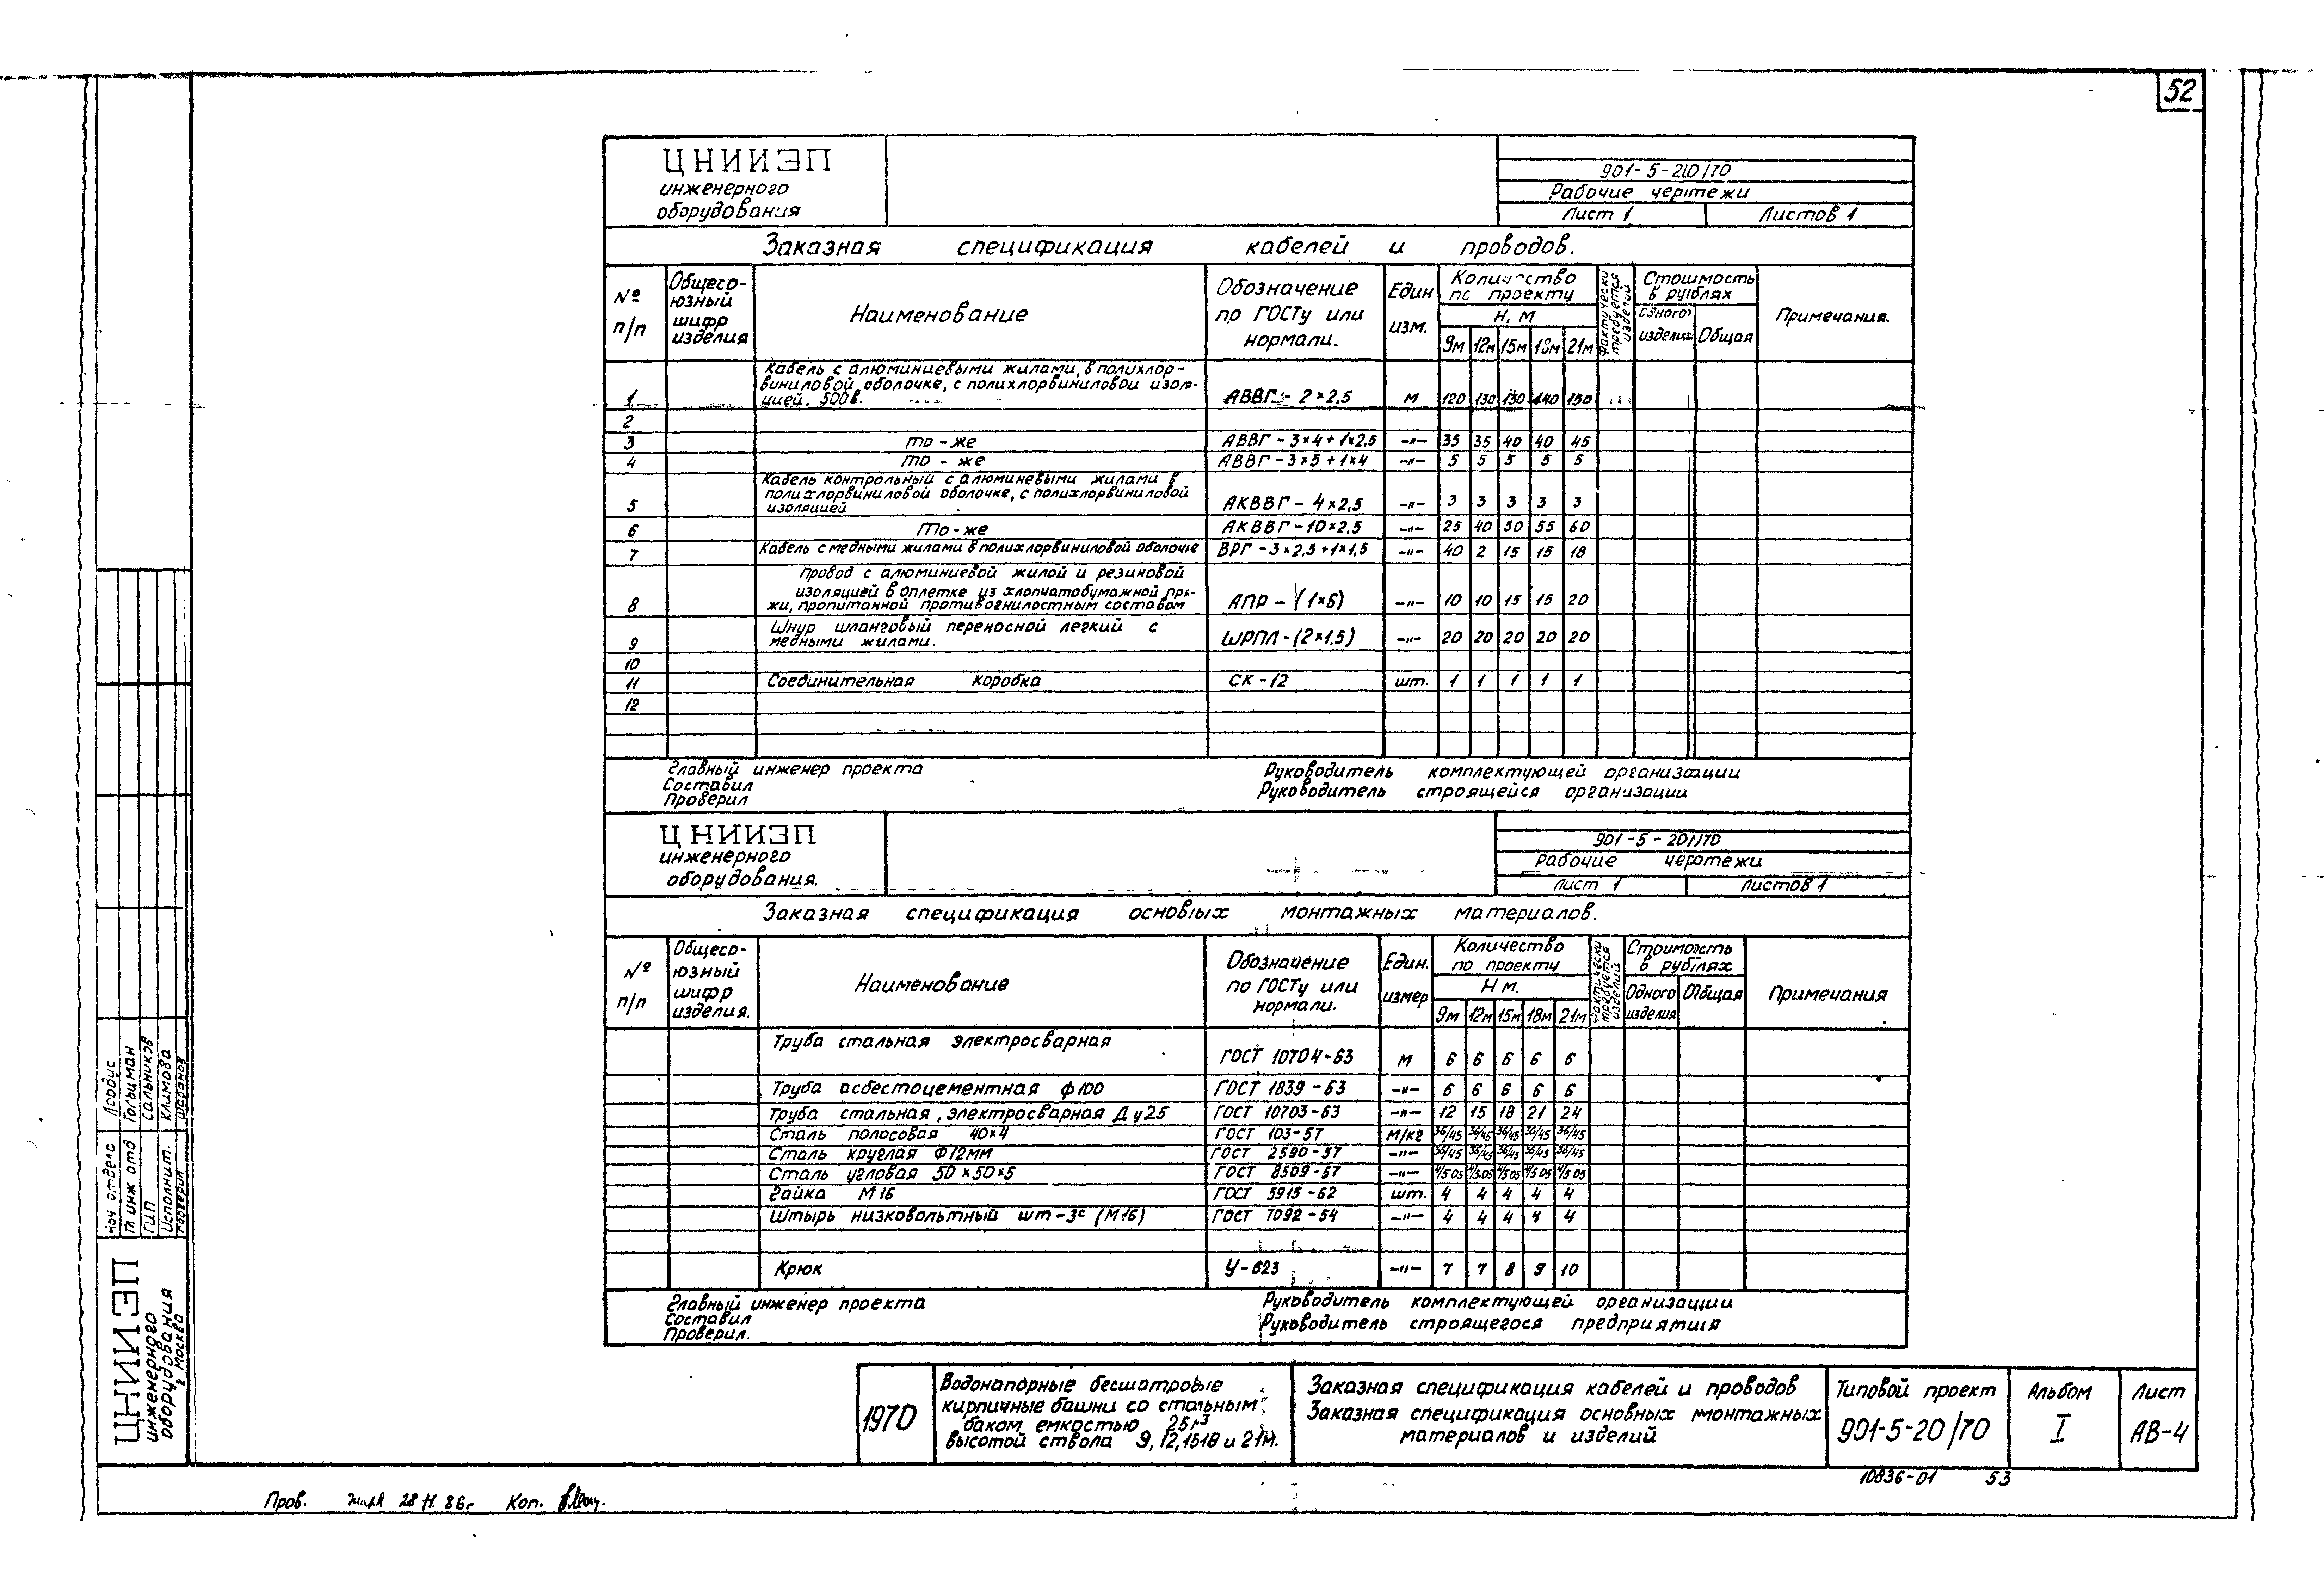 52
ЦНИИЭП
инженерного
оборудования
901-5-20/70
Рабочие чертежи
Лист 1 Листов 1
Заказная спецификация кабелей и проводов.
№ п/п Общесо-юзный шифр изделия Наименование Обозначение по ГОСТу или нормали. Един изм. Количество по проекту Н, м 9м 12м 15м 18м 21м Фактически требуется изделий Стоимость в рублях Одного изделия Общая Примечания.
Кабель с алюминиевыми жилами, в полихлор-
виниловой оболочке, с полихлорвиниловой изоля-
1 цией, 500в. АВВГ - 2×2,5 м 120 130 130 140 150
2
3 то-же АВВГ - 3×4+1×2,5 -"- 35 35 40 40 45
4 то-же АВВГ - 3×5+1×4 -"- 5 5 5 5 5
Кабель контрольный с алюминевыми жилами в
полихлорвиниловой оболочке, с полихлорвиниловой
5 изоляцией АКВВГ - 4×2,5 -"- 3 3 3 3 3
6 То-же АКВВГ - 10×2,5 -"- 25 40 50 55 60
7 Кабель с медными жилами в полихлорвиниловой оболочке ВРГ - 3×2,5+1×1,5 -"- 40 2 15 15 18
Провод с алюминиевой жилой и резиновой
изоляцией в оплетке из хлопчатобумажной пря-
8 жи, пропитанной противогнилостным составом АПР - (1×6) -"- 10 10 15 15 20
Шнур шланговый переносной легкий с
9 медными жилами. ШРПЛ - (2×1,5) -"- 20 20 20 20 20
10
11 Соединительная коробка СК-12 шт. 1 1 1 1 1
12
Главный инженер проекта Руководитель комплектующей организации
Составил Руководитель строящейся организации
Проверил
ЦНИИЭП
инженерного
оборудования.
901-5-20/70
Рабочие чертежи
Лист 1 Листов 1
Заказная спецификация основых монтажных материалов.
№ п/п Общесо-юзный шифр изделия. Наименование Обозначение по ГОСТу или нормали. Един. измер Количество по проекту Н м. 9м 12м 15м 18м 21м Фактически требуется изделий Стоимость в рублях Одного изделия Общая Примечания
Труба стальная электросварная ГОСТ 10704-63 м 6 6 6 6 6
Труба асбестоцементная ф100 ГОСТ 1839-63 -"- 6 6 6 6 6
Труба стальная, электросварная Ду25 ГОСТ 10703-63 -"- 12 15 18 21 24
Сталь полосовая 40×4 ГОСТ 103-57 м/кг 36/45 36/45 36/45 36/45 36/45
Сталь круглая Ф12мм ГОСТ 2590-57 -"- 36/45 36/45 36/45 36/45 36/45
Сталь угловая 50×50×5 ГОСТ 8509-57 -"-
Гайка М16 ГОСТ 5915-62 шт. 4 4 4 4 4
Штырь низковольтный шт-3с (М16) ГОСТ 7092-54 -"- 4 4 4 4 4
Крюк У-623 -"- 7 7 8 9 10
Главный инженер проекта Руководитель комплектующей организации
Составил Руководитель строящегося предприятия
Проверил.
Нач отдела
Гл инж отд Гольцман
ГИП Сальников
Исполнит. Климова
Проверил
ЦНИИЭП
инженерного
оборудования
г Москва
1970
Водонапорные бесшатровые
кирпичные башни со стальным
баком емкостью 25м³
высотой ствола 9,12,15,18 и 21м.
Заказная спецификация кабелей и проводов
Заказная спецификация основных монтажных
материалов и изделий
Типовой проект
901-5-20/70
Альбом
I
Лист
АВ-4
10836-01 53
Пров. 28 II 86г Коп.